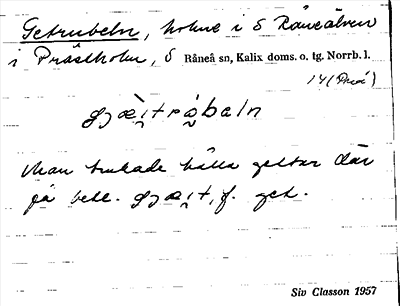 Getrubeln, holme i S Råneälven
i Prästholm, S Råneå sn, Kalix doms. o. tg. Norrb. l.
14 (Prä)
gjæ̀i̯tråbaln
Man brukade hålla getter där
på bete. gjæi̯t, f. get.
Siv Classon 1957